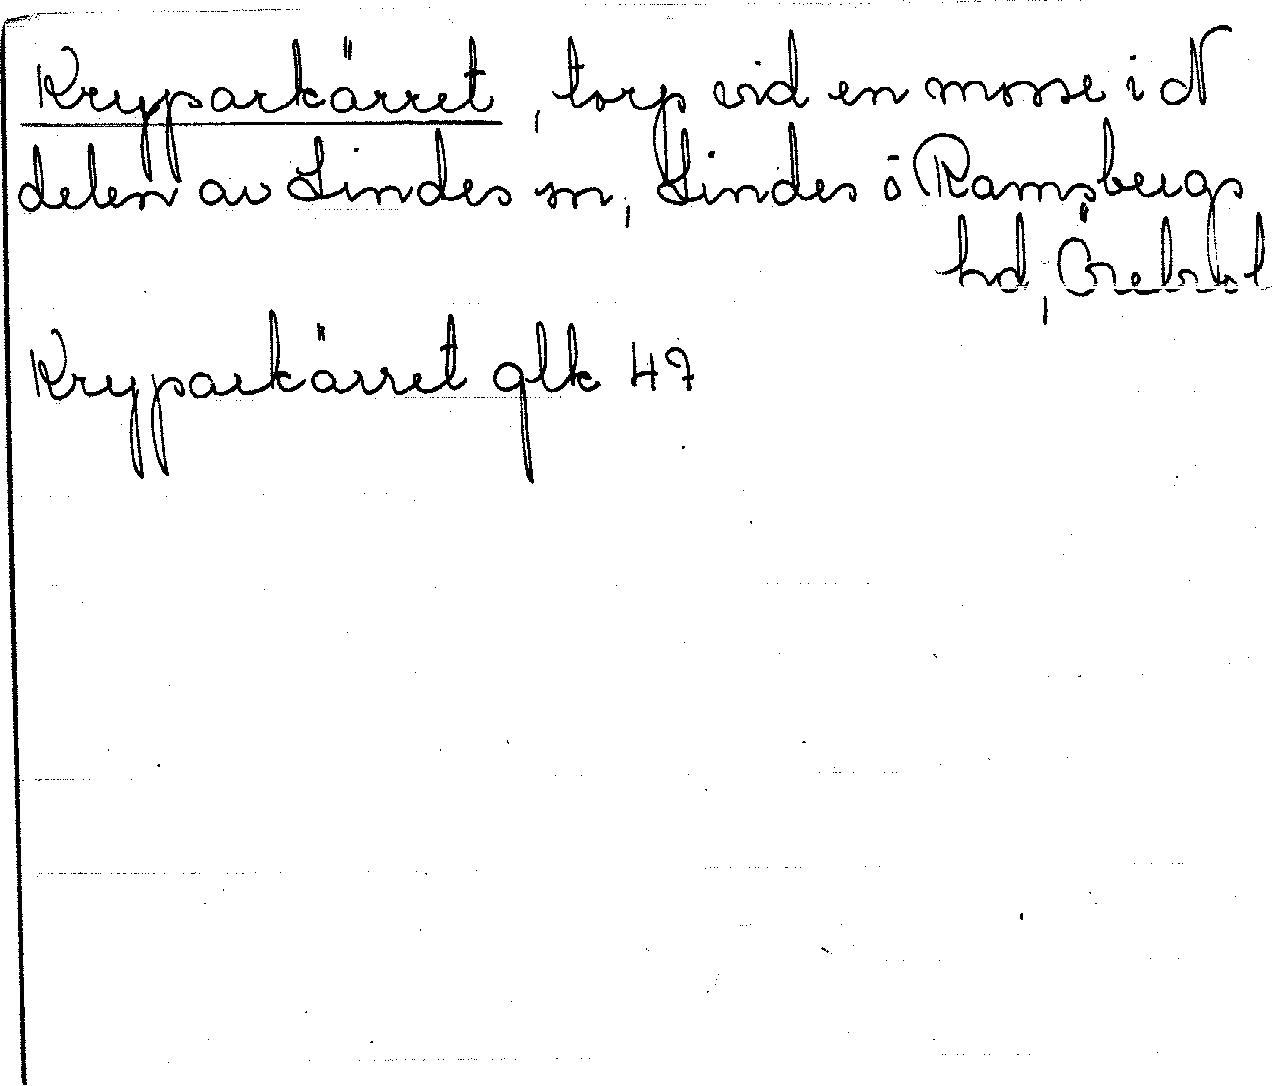 Kryparkärret, torp vid en mosse i N
delen av Lindes sn, Lindes ö Ramsbergs
hd, Örebro l
Kryparkärret glk 47